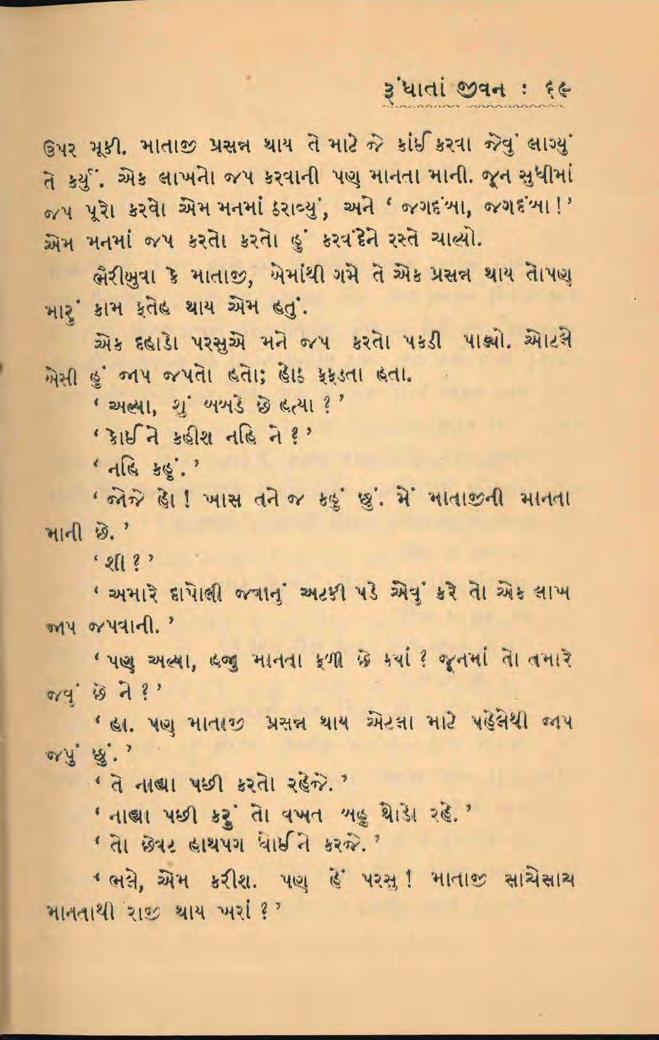 રૂંધાતાં જીવન : ૬૯
ઉપર મૂકી. માતાજી પ્રસન્ન થાય તે માટે જે કાંઈ કરવા જેવું લાગ્યું
તે કર્યું. એક લાખનો જપ કરવાની પણ માનતા માની. જૂન સુધીમાં
જપ પૂરો કરવો એમ મનમાં ઠરાવ્યું, અને ‘ જગદંબા, જગદંબા ! ’
એમ મનમાં જપ કરતો કરતો હું કરવંદેને રસ્તે ચાલ્યો.
ભૈરીબુવા કે માતાજી, બેમાંથી ગમે તે એક પ્રસન્ન થાય તોપણ
મારું કામ ફતેહ થાય એમ હતું.
એક દહાડો પરસુએ મને જપ કરતો પકડી પાડ્યો. ઓટલે
બેસી હું જાપ જપતો હતો; હોઠ ફફડતા હતા.
‘ અલ્યા, શું બબડે છે હત્યા ? ’
‘ કોઈને કહીશ નહિ ને ? ’
‘ નહિ કહું. ’
‘ જોજે હો ! ખાસ તને જ કહું છું. મેં માતાજીની માનતા
માની છે. ’
‘ શી ? ’
‘ અમારે દાપોલી જવાનું અટકી પડે એવું કરે તો એક લાખ
જાપ જપવાની. ’
‘ પણ અલ્યા, હજુ માનતા ફળી છે ક્યાં ? જૂનમાં તો તમારે
જવું છે ને ? ’
‘ હા. પણ માતાજી પ્રસન્ન થાય એટલા માટે પહેલેથી જાપ
જપું છું. ’
‘ તે નાહ્યા પછી કરતો રહેજે. ’
‘ નાહ્યા પછી કરું તો વખત બહુ થોડો રહે. ’
‘ તો છેવટ હાથપગ ધોઈને કરજે. ’
‘ ભલે, એમ કરીશ. પણ હેં પરસુ ! માતાજી સાચેસાચ
માનતાથી રાજી થાય ખરાં ? ’